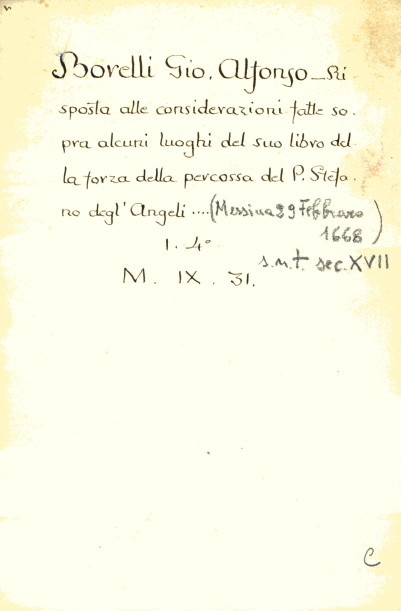 Borelli Gio. Alfonso _ Ri
sposta alle considerazioni fatte so.
pra alcuni luoghi del suo libro del
la forza della percossa del P. Stefa.
no degl' Angeli .... (Messina 29 Febbraro
1668)
1. 4°
s.n.t. sec. XVII
M. IX. 31.
C